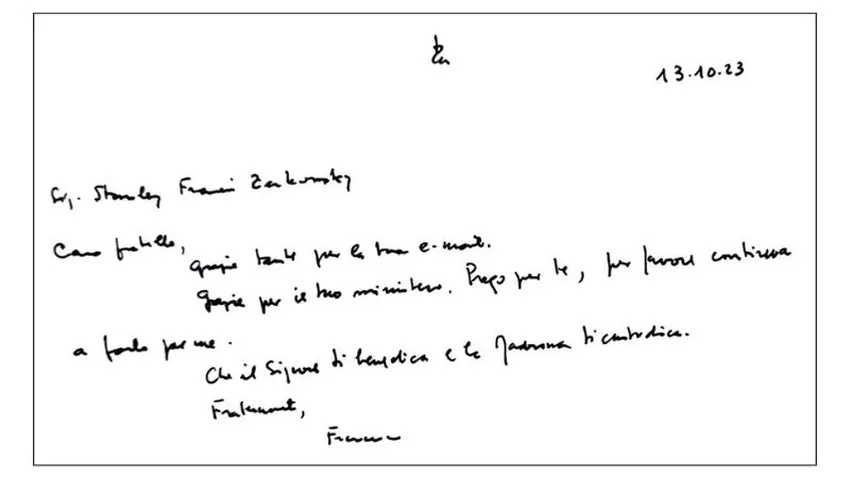 13.10.23
Sig. Stanley Francis Zerkowsky
Caro fratello,
grazie tante per la tua e-mail.
Grazie per il tuo ministero. Prego per te, per favore continua
a farlo per me.
Che il Signore ti benedica e la Madonna ti custodisca.
Fraternamente,